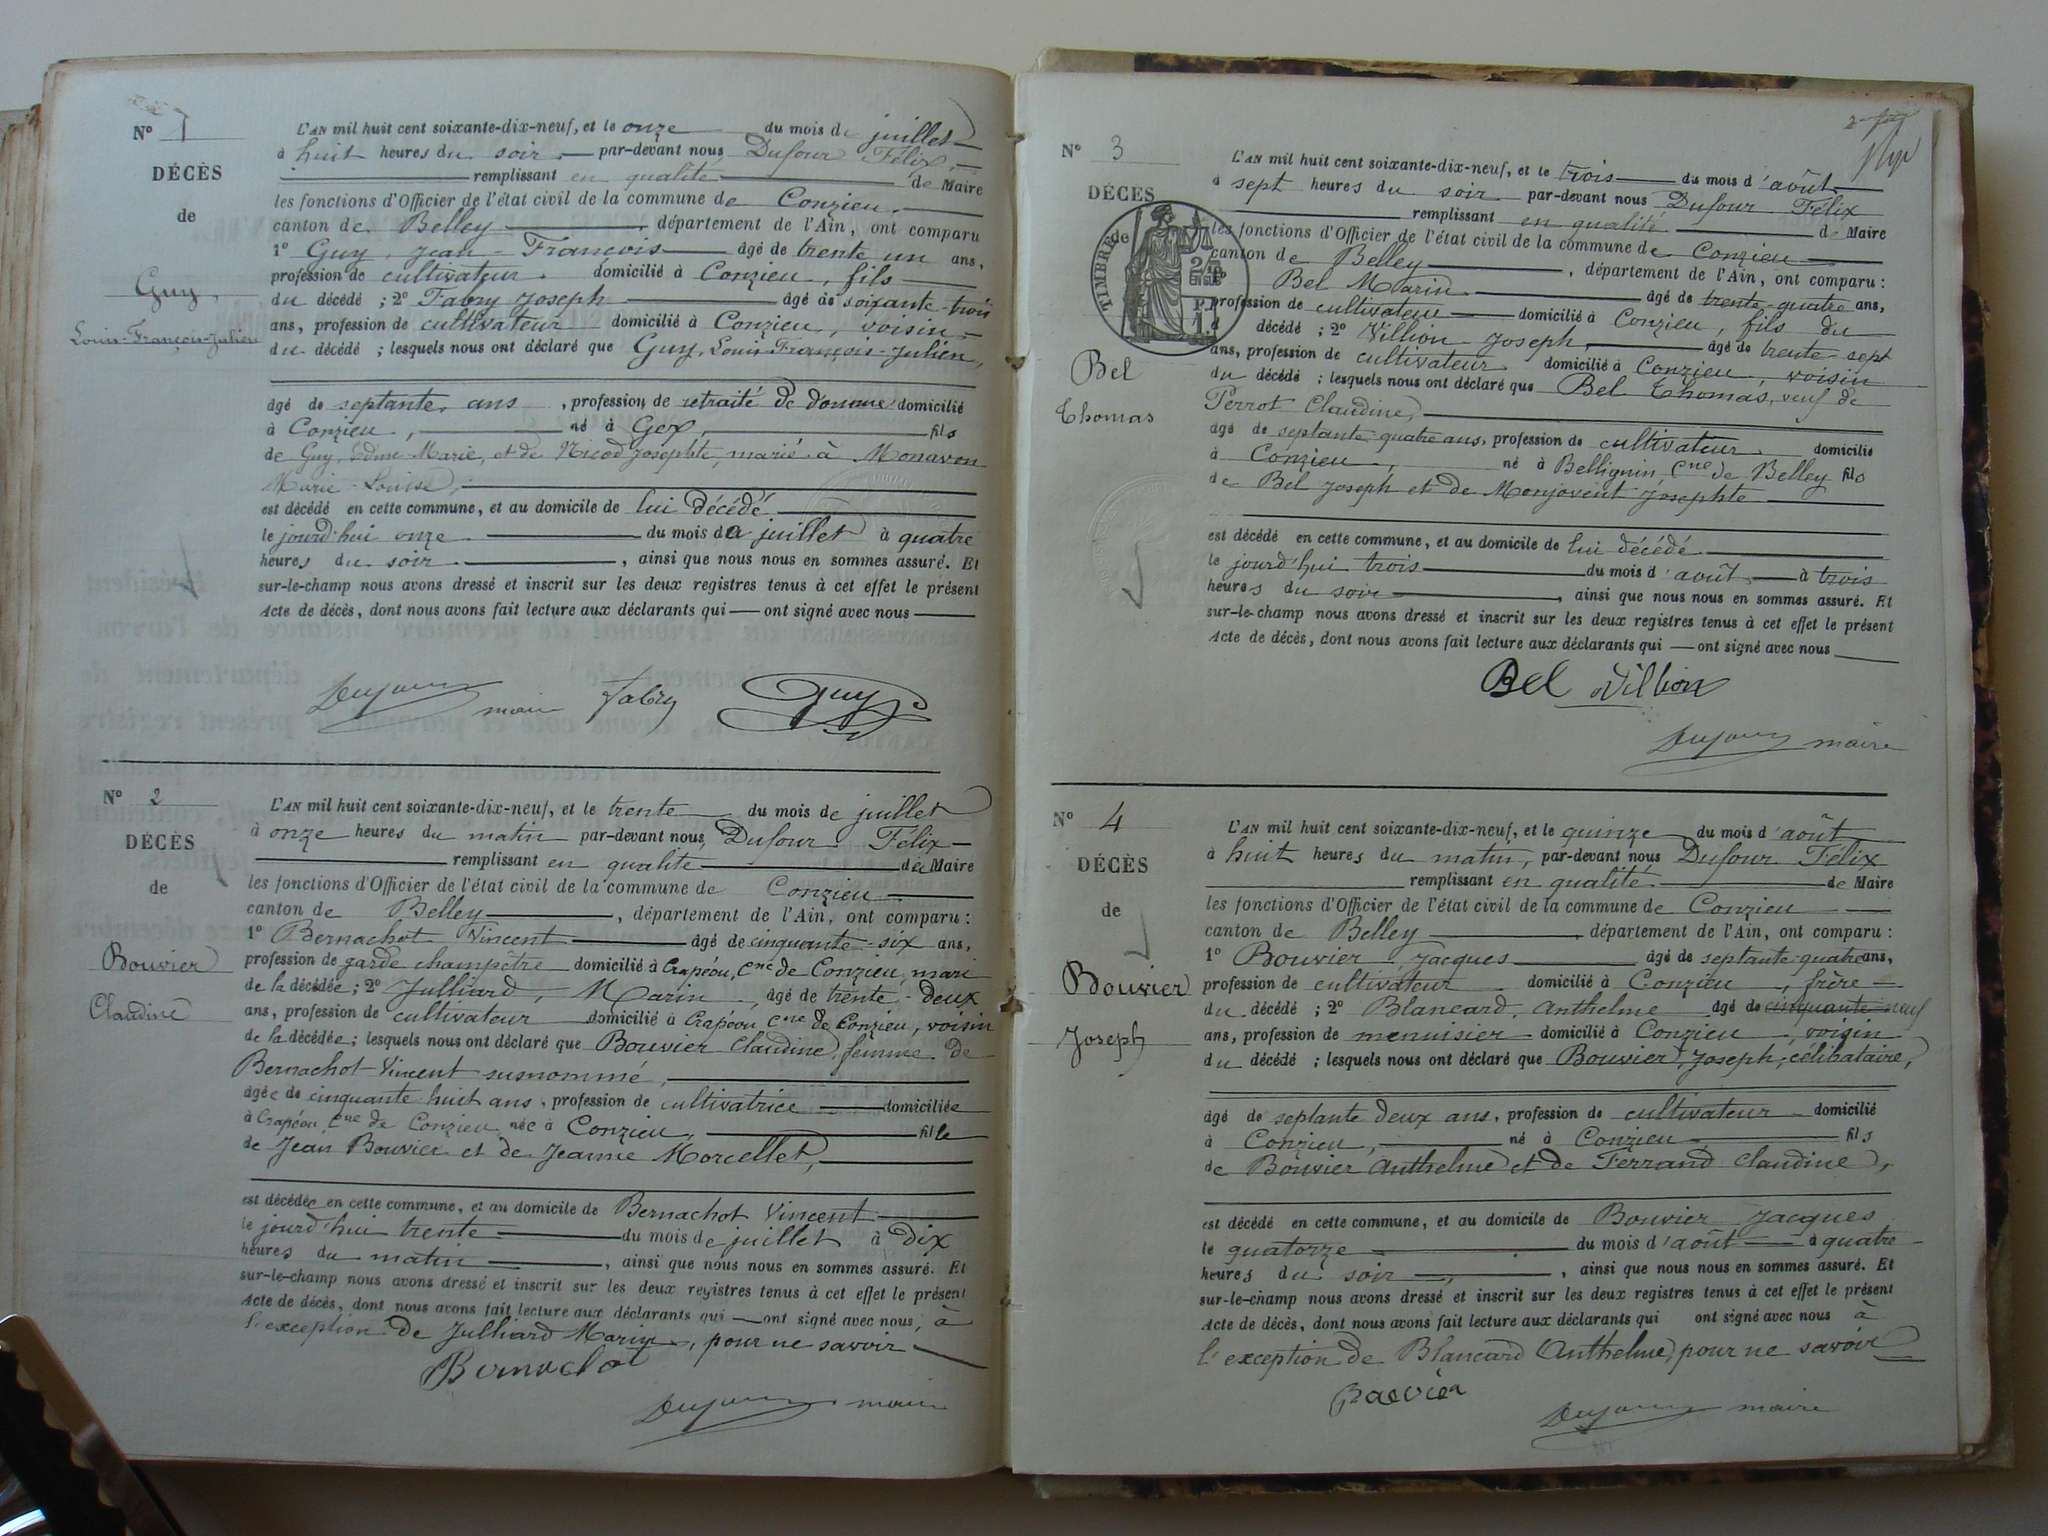 N° 1
DÉCÈS
de
Guy,
Louis-François-Julien
L'AN mil huit cent soixante-dix-neuf, et le onze du mois de juillet
à huit heures du soir par-devant nous Dufour Félix,
remplissant en qualité de Maire
les fonctions d'Officier de l'état civil de la commune de Conzieu
canton de Belley, département de l'Ain, ont comparu
1° Guy, Jean-François âgé de trente un ans,
profession de cultivateur domicilié à Conzieu, fils
du décédé ; 2° Fabry Joseph âgé de soixante-trois
ans, profession de cultivateur domicilié à Conzieu, voisin
du décédé ; lesquels nous ont déclaré que Guy, Louis-François-Julien,
âgé de septante ans, profession de retraité de douane domicilié
à Conzieu, né à Gex, fils
de Guy, Edme-Marie, et de Nicod Josephte, marié à Monavon
Marie-Louise,
est décédé en cette commune, et au domicile de lui décédé
le jourd'hui onze du mois de juillet à quatre
heures du soir, ainsi que nous nous en sommes assuré. Et
sur-le-champ nous avons dressé et inscrit sur les deux registres tenus à cet effet le présent
Acte de décès, dont nous avons fait lecture aux déclarants qui ont signé avec nous
Dufour maire Fabry Guy
N° 2
DÉCÈS
de
Bouvier
Claudine
L'AN mil huit cent soixante-dix-neuf, et le trente du mois de juillet
à onze heures du matin par-devant nous, Dufour Félix
remplissant en qualité de Maire
les fonctions d'Officier de l'état civil de la commune de Conzieu
canton de Belley, département de l'Ain, ont comparu :
1° Bernachot Vincent âgé de cinquante-six ans,
profession de garde champêtre domicilié à Crapéou, Cne de Conzieu, mari
de la décédée ; 2° Julliard, Marin, âgé de trente-deux
ans, profession de cultivateur domicilié à Crapéou Cne de Conzieu, voisin
de la décédée ; lesquels nous ont déclaré que Bouvier Claudine, femme de
Bernachot Vincent susnommé,
âgée de cinquante huit ans, profession de cultivatrice domiciliée
à Crapéou, Cne de Conzieu, née à Conzieu, fille
de Jean Bouvier et de Jeanne Morcellet,
est décédée en cette commune, et au domicile de Bernachot Vincent
le jourd'hui trente du mois de juillet à dix
heures du matin, ainsi que nous nous en sommes assuré. Et
sur-le-champ nous avons dressé et inscrit sur les deux registres tenus à cet effet le présent
Acte de décès, dont nous avons fait lecture aux déclarants qui ont signé avec nous, à
l'exception de Julliard Marin, pour ne savoir
Bernachot
Dufour maire
N° 3
DÉCES
de
TIMBRE
Bel
Thomas
L'AN mil huit cent soixante-dix-neuf, et le trois du mois d'août
à sept heures du soir par-devant nous Dufour Félix
remplissant en qualité de Maire
les fonctions d'Officier de l'état civil de la commune de Conzieu
canton de Belley, département de l'Ain, ont comparu :
Bel Marin âgé de trente-quatre ans,
profession de cultivateur domicilié à Conzieu, fils du
décédé ; 2° Villion Joseph, âgé de trente-sept
ans, profession de cultivateur domicilié à Conzieu, voisin
du décédé ; lesquels nous ont déclaré que Bel Thomas, veuf de
Perrot Claudine,
âgé de septante-quatre ans, profession de cultivateur domicilié
à Conzieu, né à Bellignin, Cne de Belley fils
de Bel Joseph et de Monjovent Josephte
est décédé en cette commune, et au domicile de lui décédé
le jourd'hui trois du mois d'août à trois
heures du soir, ainsi que nous nous en sommes assuré. Et
sur-le-champ nous avons dressé et inscrit sur les deux registres tenus à cet effet le présent
Acte de décès, dont nous avons fait lecture aux déclarants qui ont signé avec nous
Bel Villion
Dufour maire
N° 4
DÉCÈS
de
Bouvier
Joseph
L'AN mil huit cent soixante-dix-neuf, et le quinze du mois d'août
à huit heures du matin, par-devant nous Dufour Félix
remplissant en qualité de Maire
les fonctions d'Officier de l'état civil de la commune de Conzieu
canton de Belley département de l'Ain, ont comparu :
1° Bouvier Jacques âgé de septante-quatre ans,
profession de cultivateur domicilié à Conzieu, frère
du décédé ; 2° Blancard Anthelme âgé de cinquante-neuf
ans, profession de menuisier domicilié à Conzieu, voisin
du décédé ; lesquels nous ont déclaré que Bouvier Joseph, célibataire,
âgé de septante deux ans, profession de cultivateur domicilié
à Conzieu, né à Conzieu fils
de Bouvier Anthelme et de Ferrand Claudine,
est décédé en cette commune, et au domicile de Bouvier Jacques
le quatorze du mois d'août à quatre
heures du soir, ainsi que nous nous en sommes assuré. Et
sur-le-champ nous avons dressé et inscrit sur les deux registres tenus à cet effet le présent
Acte de décès, dont nous avons fait lecture aux déclarants qui ont signé avec nous à
l'exception de Blancard Anthelme, pour ne savoir
Bouvier
Dufour maire